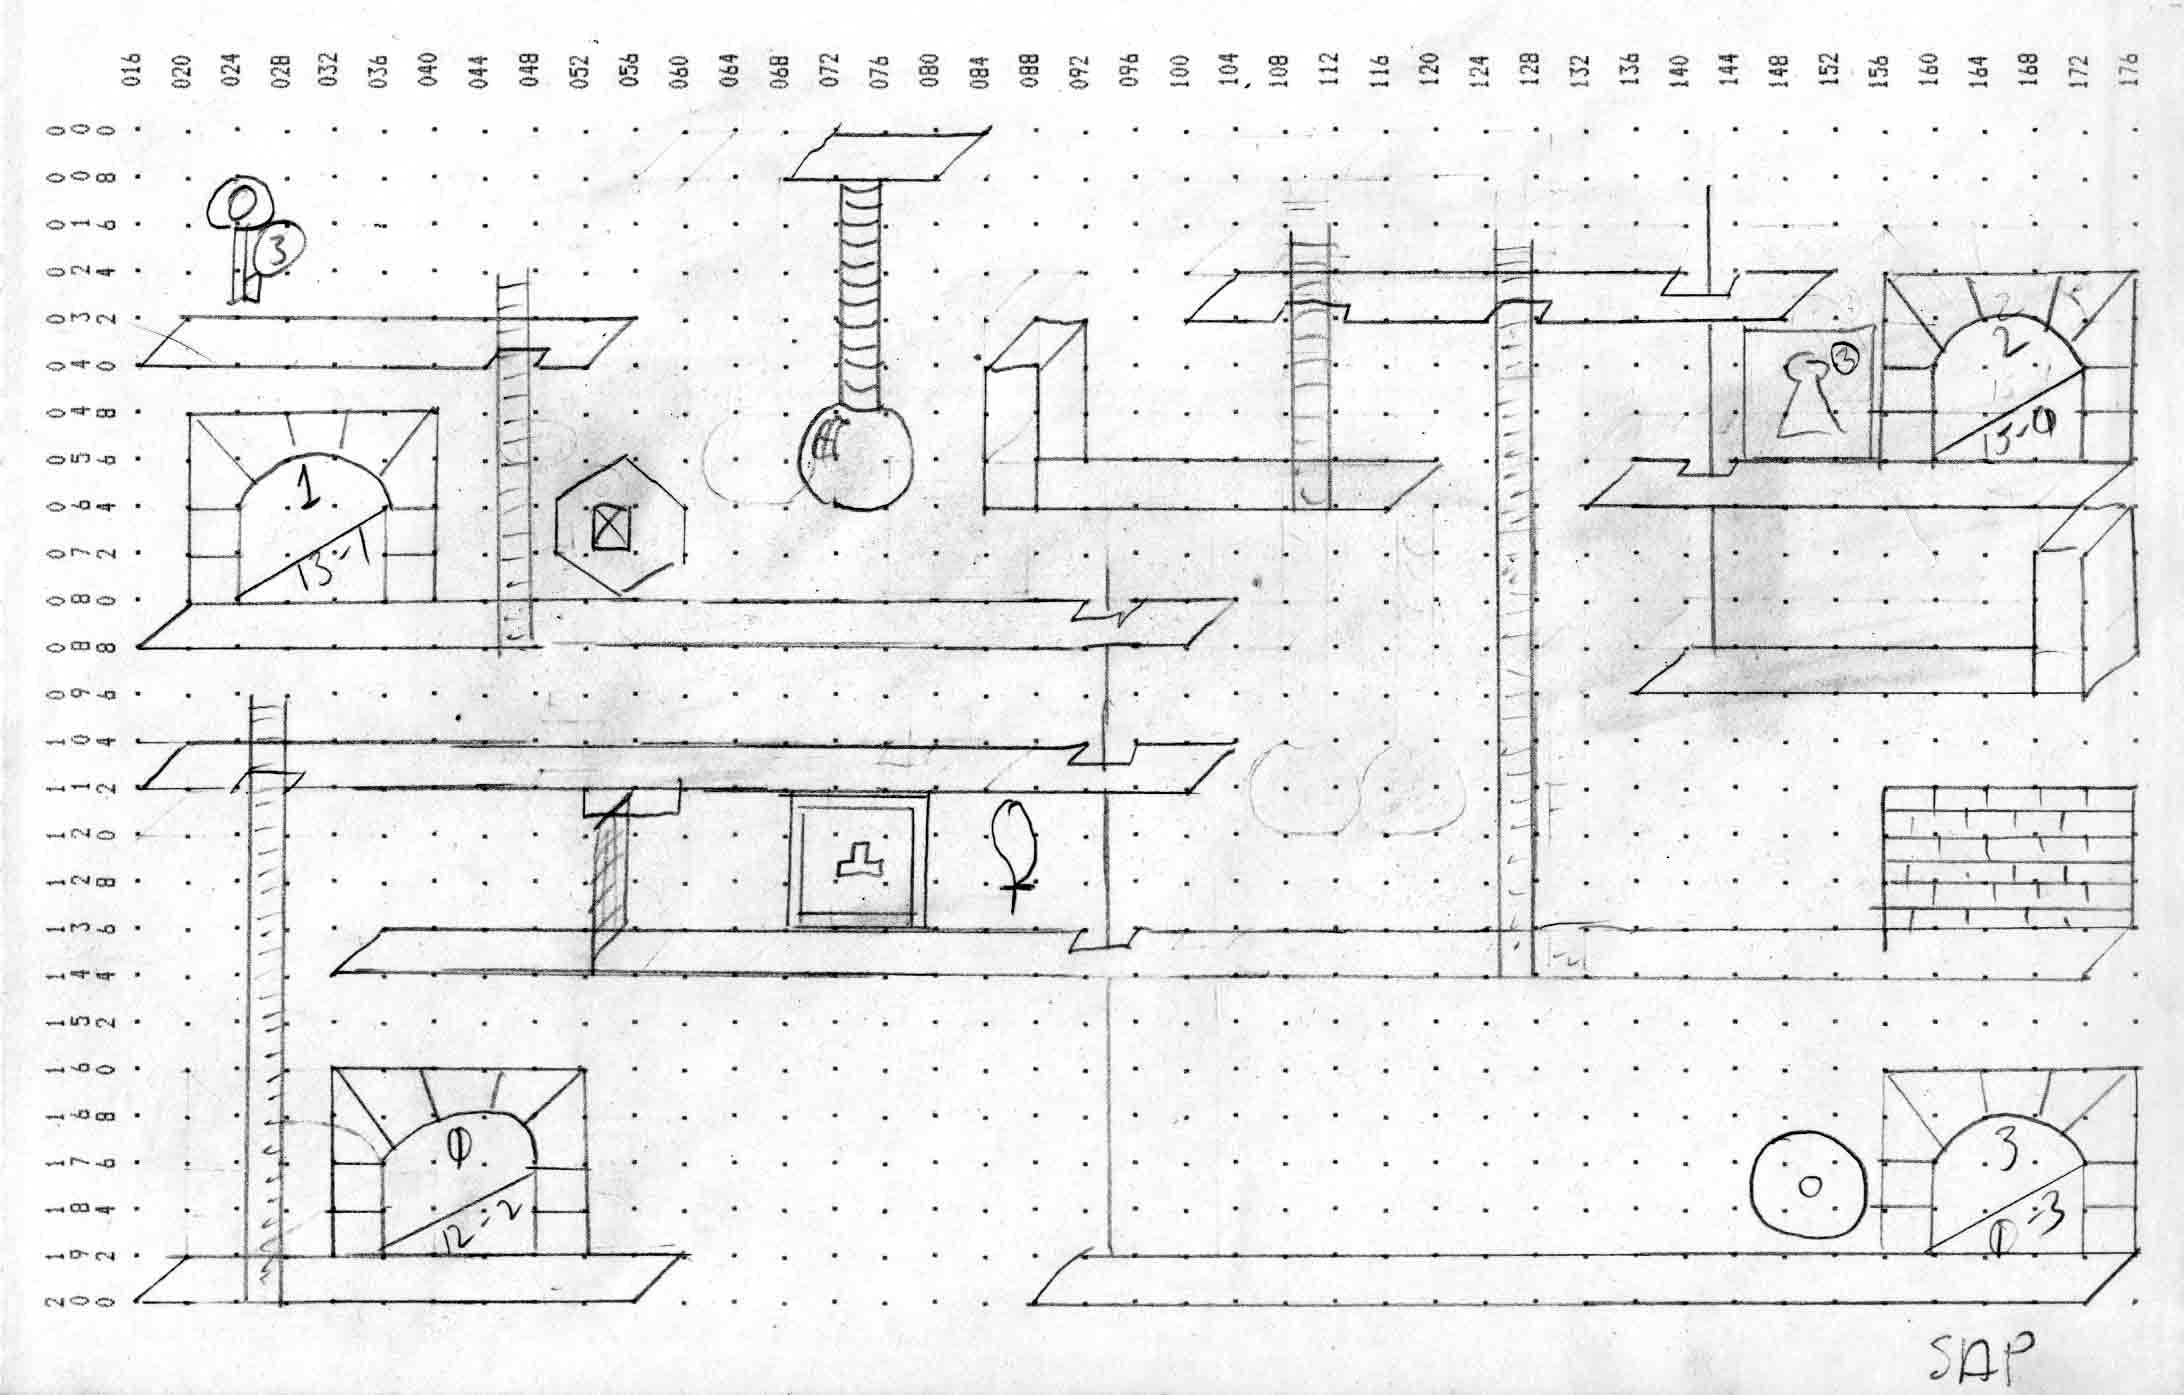 016 020 024 028 032 036 040 044 048 052 056 060 064 068 072 076 080 084 088 092 096 100 104 108 112 116 120 124 128 132 136 140 144 148 152 156 160 164 168 172 176
000
008
016
3
024
032
2
3
040
15-0
048
056
1
064
13-1
072
080
088
096
104
112
120
128
136
144
152
160
168
0
3
176
184
12-2
0-3
192
200
SAP